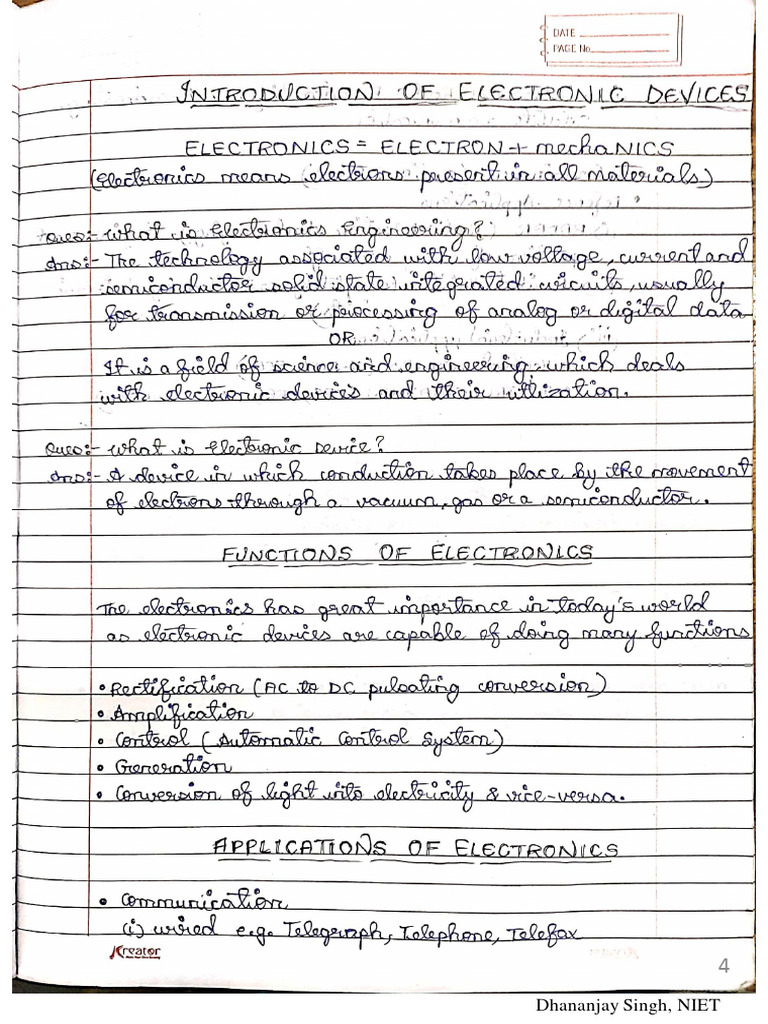 DATE
PAGE No.
INTRODUCTION OF ELECTRONIC DEVICES
ELECTRONICS = ELECTRON + mechaNICS
(Electronics means electrons present in all materials)
Ques:- What is Electronics Engineering?
Ans:- The technology associated with low voltage, current and
semiconductor solid state integrated circuits, usually
for transmission or processing of analog or digital data
OR
It is a field of science and engineering, which deals
with electronic devices and their utilization.
Ques:- What is Electronic Device?
Ans:- A device in which conduction takes place by the movement
of electrons through a vacuum, gas or a semiconductor.
FUNCTIONS OF ELECTRONICS
The electronics has great importance in today's world
as electronic devices are capable of doing many functions
• Rectification (AC to DC pulsating conversion)
• Amplification
• Control (Automatic Control System)
• Generation
• Conversion of light into electricity & vice-versa.
APPLICATIONS OF ELECTRONICS
• Communication
(i) wired e.g. Telegraph, Telephone, Telefax
Kreator
4
Dhananjay Singh, NIET